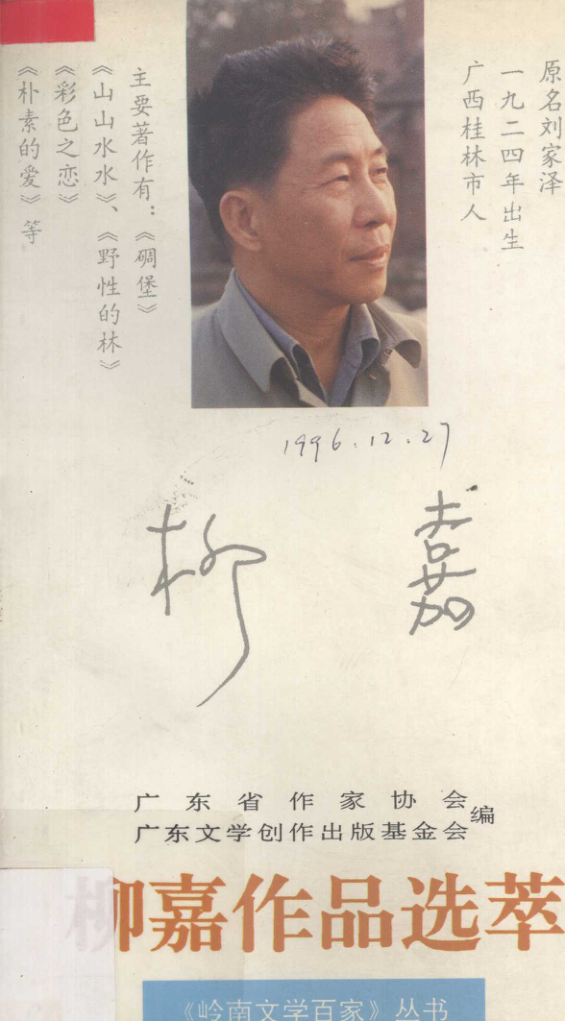 原名刘家泽
一九二四年出生
广西桂林市人
主要著作有：《碉堡》
《山山水水》、《野性的林》
《彩色之恋》
《朴素的爱》等
1996.12.27
柳嘉
广东省作家协会
广东文学创作出版基金会
编
柳嘉作品选萃
《岭南文学百家》丛书